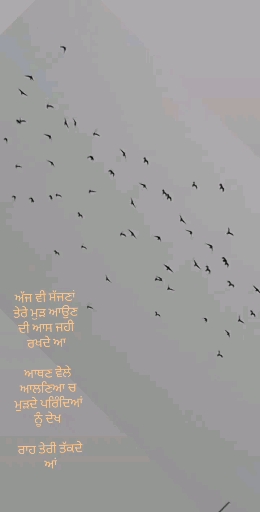 ਅੱਜ ਵੀ ਸੱਜਣਾਂ
ਤੇਰੇ ਮੁੜ ਆਉਣ
ਦੀ ਆਸ ਜਹੀ
ਰਖਦੇ ਆਂ
ਆਥਣ ਵੇਲੇ
ਆਲਣਿਆ ਚ
ਮੁੜਦੇ ਪਰਿੰਦਿਆਂ
ਨੂੰ ਦੇਖ
ਰਾਹ ਤੇਰੀ ਤੱਕਦੇ
ਆਂ